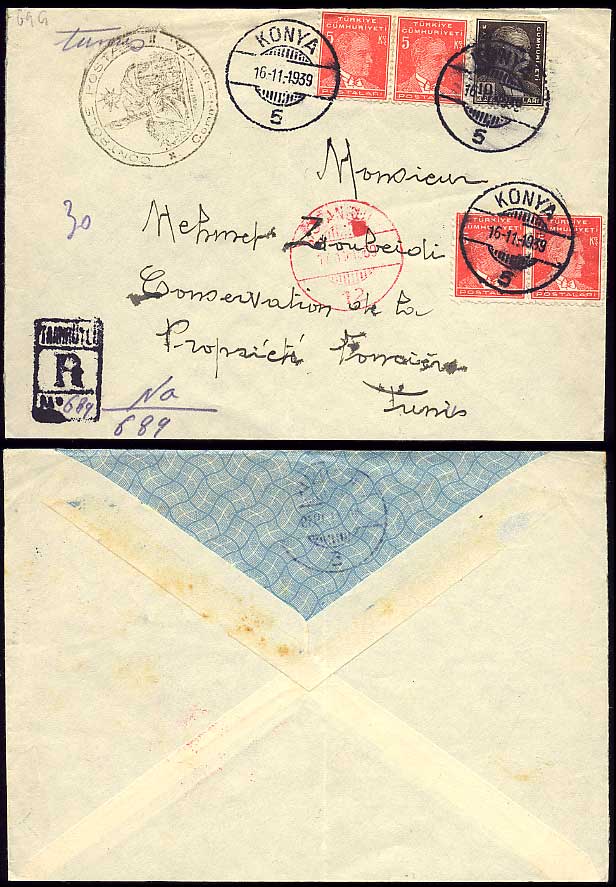 69G
tunus
CONTROL POSTAL
KONYA
16-11-1939
5
TÜRKİYE CÜMHURİYETİ
5 Ks
POSTALARI
TÜRKİYE CÜMHURİYETİ
5 Ks
POSTALARI
CÜMHURİYETİ
KONYA
5
Monsieur
30
Mehmet Zaoubeidi
Conservation de la
Propriété Foncière
Tunis
12
KONYA
16-11-1939
5
TÜRKİYE CÜMHURİYETİ
POSTALARI
TÜRKİYE CÜMHURİYETİ
POSTALARI
TAAHHÜTLÜ
R
No 689
No
689